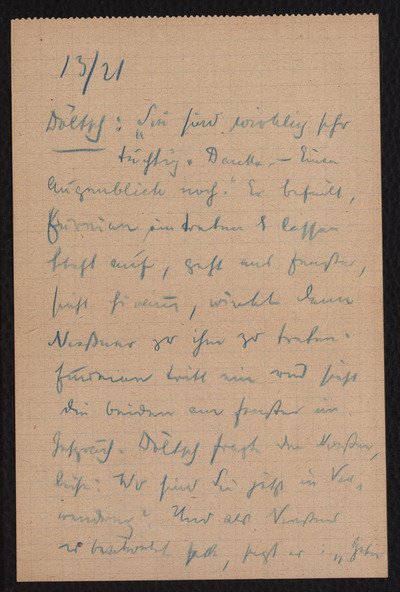 13/21
Döltsch: "Sie sind wirklich sehr
tüchtig. Danke. – Einen
Augenblick noch." Er befiehlt,
Furrian eintreten zu lassen
steht auf, geht ans Fenster,
sieht hinaus, winkt dann
zu ihm zu treten.
Furrian tritt ein und sieht
die beiden am Fenster im
Gespräch. Döltsch fragt den
leise: Wo sind Sie jetzt in Ver-
wendung? Und als
er beantwortet hat, sagt er: „